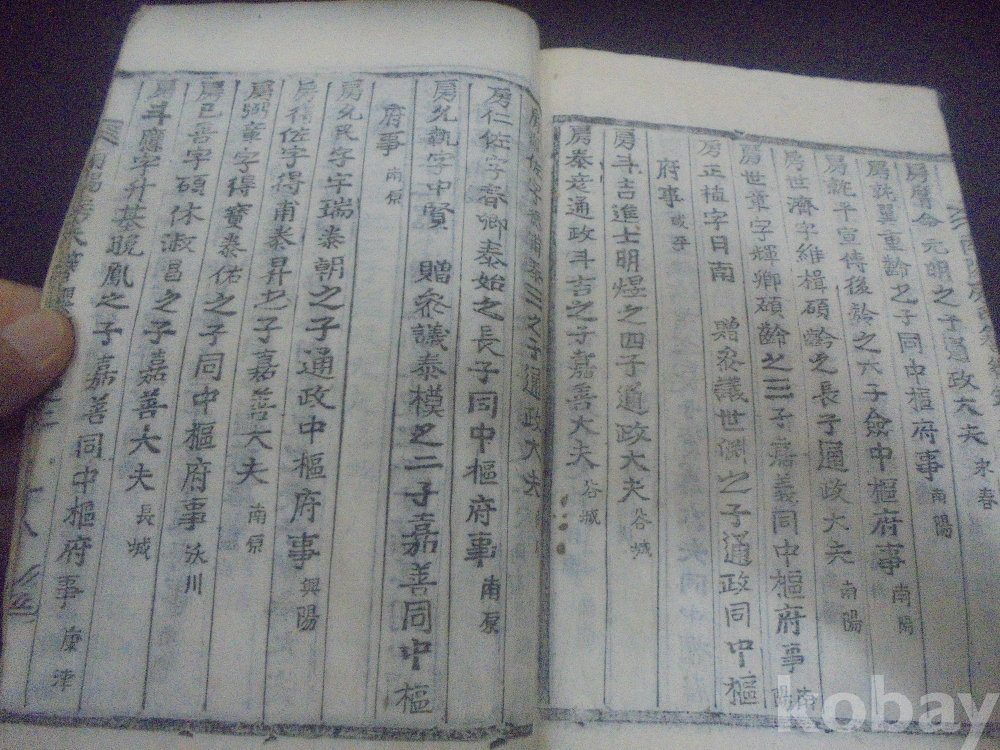 房曆今元明之子通政大夫 永春
房銃星重齡之子同中樞府事 南陽
房銃平宣侍後於之六子僉中樞府事 南陽
房世濟字維楫碩齡之長子通政大夫 南陽
房世章字輝卿碩齡之三子嘉義同中樞府事 南陽
房正植字日南 贈參議世淵之子通政同中樞
府事
房斗吉進士明煜之四子通政大夫 谷城
房泰彥通政斗吉之子嘉善大夫 谷城
佐字 三之子通政大夫
房仁佐字春卿泰始之長子同中樞府事 南原
房允執字中賢 贈參議泰模之二子嘉善同中樞
府事 南原
房允民字子瑞泰朝之子通政中樞府事 興陽
房 佐字得甫泰昇之子嘉善大夫 南原
房弼章字得寶泰佑之子同中樞府事 沃川
房己善字碩休淑昌之子嘉善大夫 長城
房斗應字升基晩鳳之子嘉善同中樞府事 康津
十八
kobay